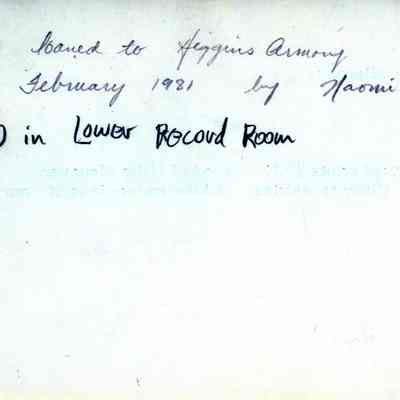 Loaned to Higgins Armory
February 1981 by Naomi
) in Lower Record Room